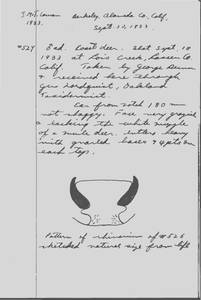 I. McT. Cowan Berkeley, Alameda Co., Calif.
1933. Sept. 12, 1933
#527 Bad. Coast deer. Shot Sept. 10
1933 at Lois Creek, Lassen Co.
Calif. Taken by George
& received here through
Gus Nordquist, Oakland
Taxidermist.
Ear from notch 180 mm
not shaggy. Face very grayish
& lacking the white muzzle
of a mule deer. Antlers heavy
with gnarled bases & 4 pts on
each
Pattern of rhinarium of #526
sketched natural size from left